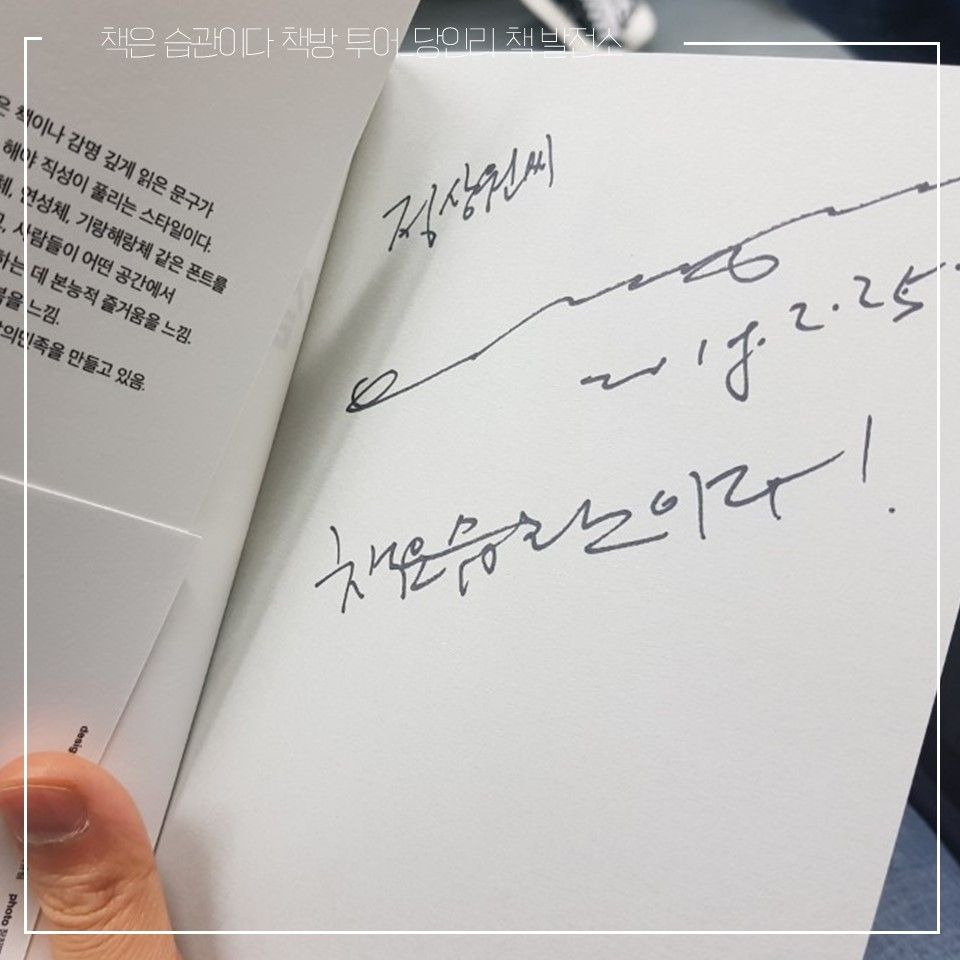 책은 습관이다 책방 투어 당인리 책 발전소
은 책이나 감명 깊게 읽은 문구가
해야 직성이 풀리는 스타일이다.
체, 연성체, 기랑해랑체 같은 폰트를
, 사람들이 어떤 공간에서
하는 데 본능적 즐거움을 느낌.
을 느낌.
의민족을 만들고 있음.
desig
photo
정상원씨
2018. 2. 25
책은 습관이다!